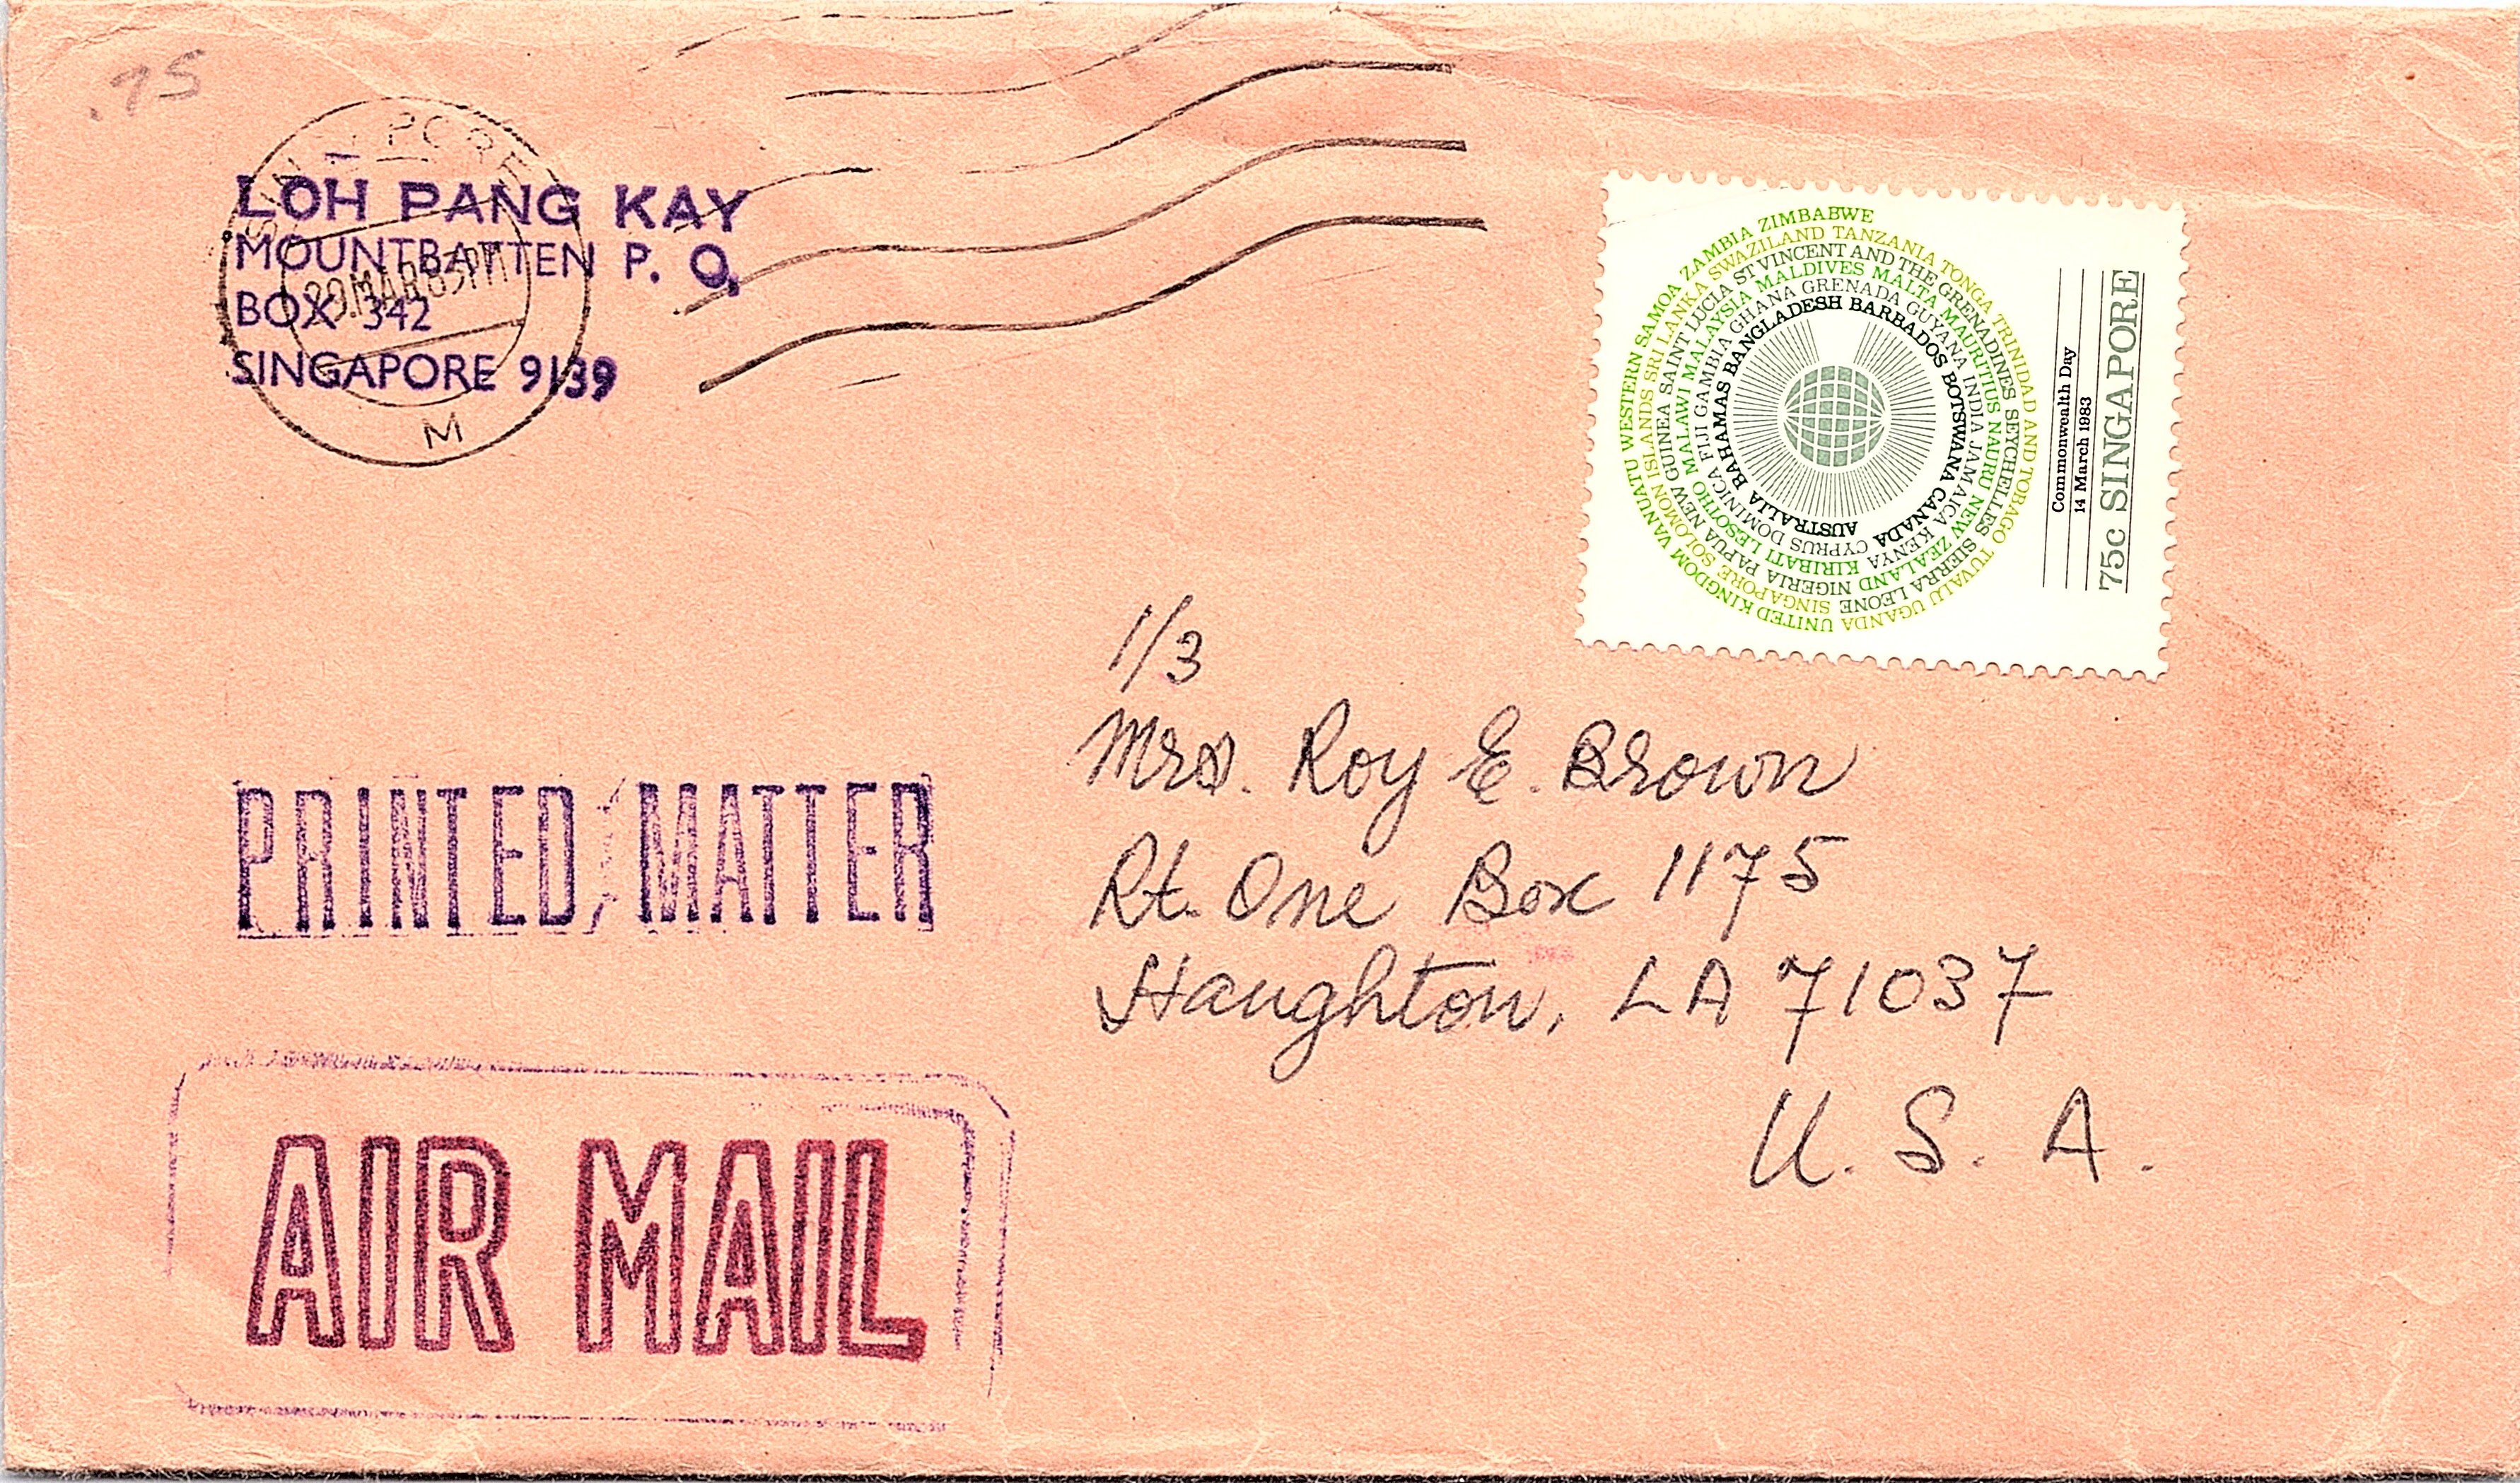 .75
SINGAPORE
29 MAR 83 PM
M
LOH PANG KAY
MOUNTBATTEN P. O.
BOX 342
SINGAPORE 9139
AUSTRALIA BAHAMAS BANGLADESH BARBADOS BOTSWANA CANADA
CYPRUS DOMINICA FIJI GAMBIA GHANA GRENADA GUYANA INDIA JAMAICA KENYA
KIRIBATI LESOTHO MALAWI MALAYSIA MALDIVES MALTA MAURITIUS NAURU NEW ZEALAND
NIGERIA PAPUA NEW GUINEA SAINT LUCIA ST VINCENT AND THE GRENADINES SEYCHELLES SIERRA LEONE
SINGAPORE SOLOMON ISLANDS SRI LANKA SWAZILAND TANZANIA TONGA TRINIDAD AND TOBAGO TUVALU UGANDA
UNITED KINGDOM VANUATU WESTERN SAMOA ZAMBIA ZIMBABWE
Commonwealth Day
14 March 1983
75c SINGAPORE
1/3
Mrs. Roy E. Brown
Rt. One Box 1175
Haughton, LA 71037
U. S. A.
PRINTED MATTER
AIR MAIL